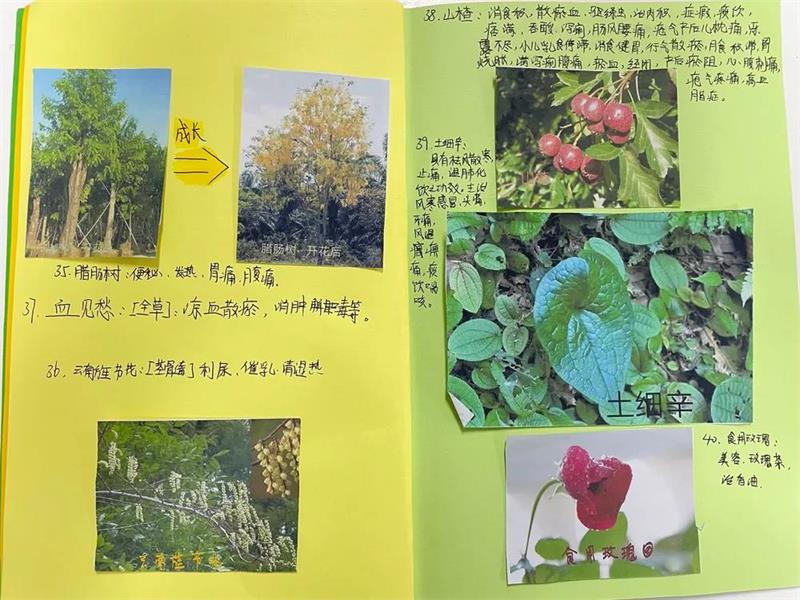 成长
腊肠树 开花后
35. 腊肠树：便秘、发热、胃痛、腹痛。
37. 血见愁：[全草]：凉血散瘀，消肿解毒等。
36. 云南旌节花：[茎髓]利尿、催乳、清湿热
云南旌节花
38. 山楂：消食积，散瘀血、驱绦虫，治肉积，症瘕，痰饮，
痞满，吞酸，泻痢，肠风，腰痛，疝气，产后儿枕痛，恶
露不尽，小儿乳食停滞，消食健胃，行气散瘀，肉食积滞，胃
满，泻痢腹痛，瘀血经闭，产后瘀阻，心腹刺痛，
疝气疼痛，高血
脂症。
39. 土细辛：
具有祛风散寒
止痛，温肺化
饮之功效。主治
风寒感冒，头痛，
牙痛，
风湿
痹
痛，痰
饮喘
咳。
土细辛
40. 食用玫瑰：
美容、玫瑰茶、
食用玫瑰